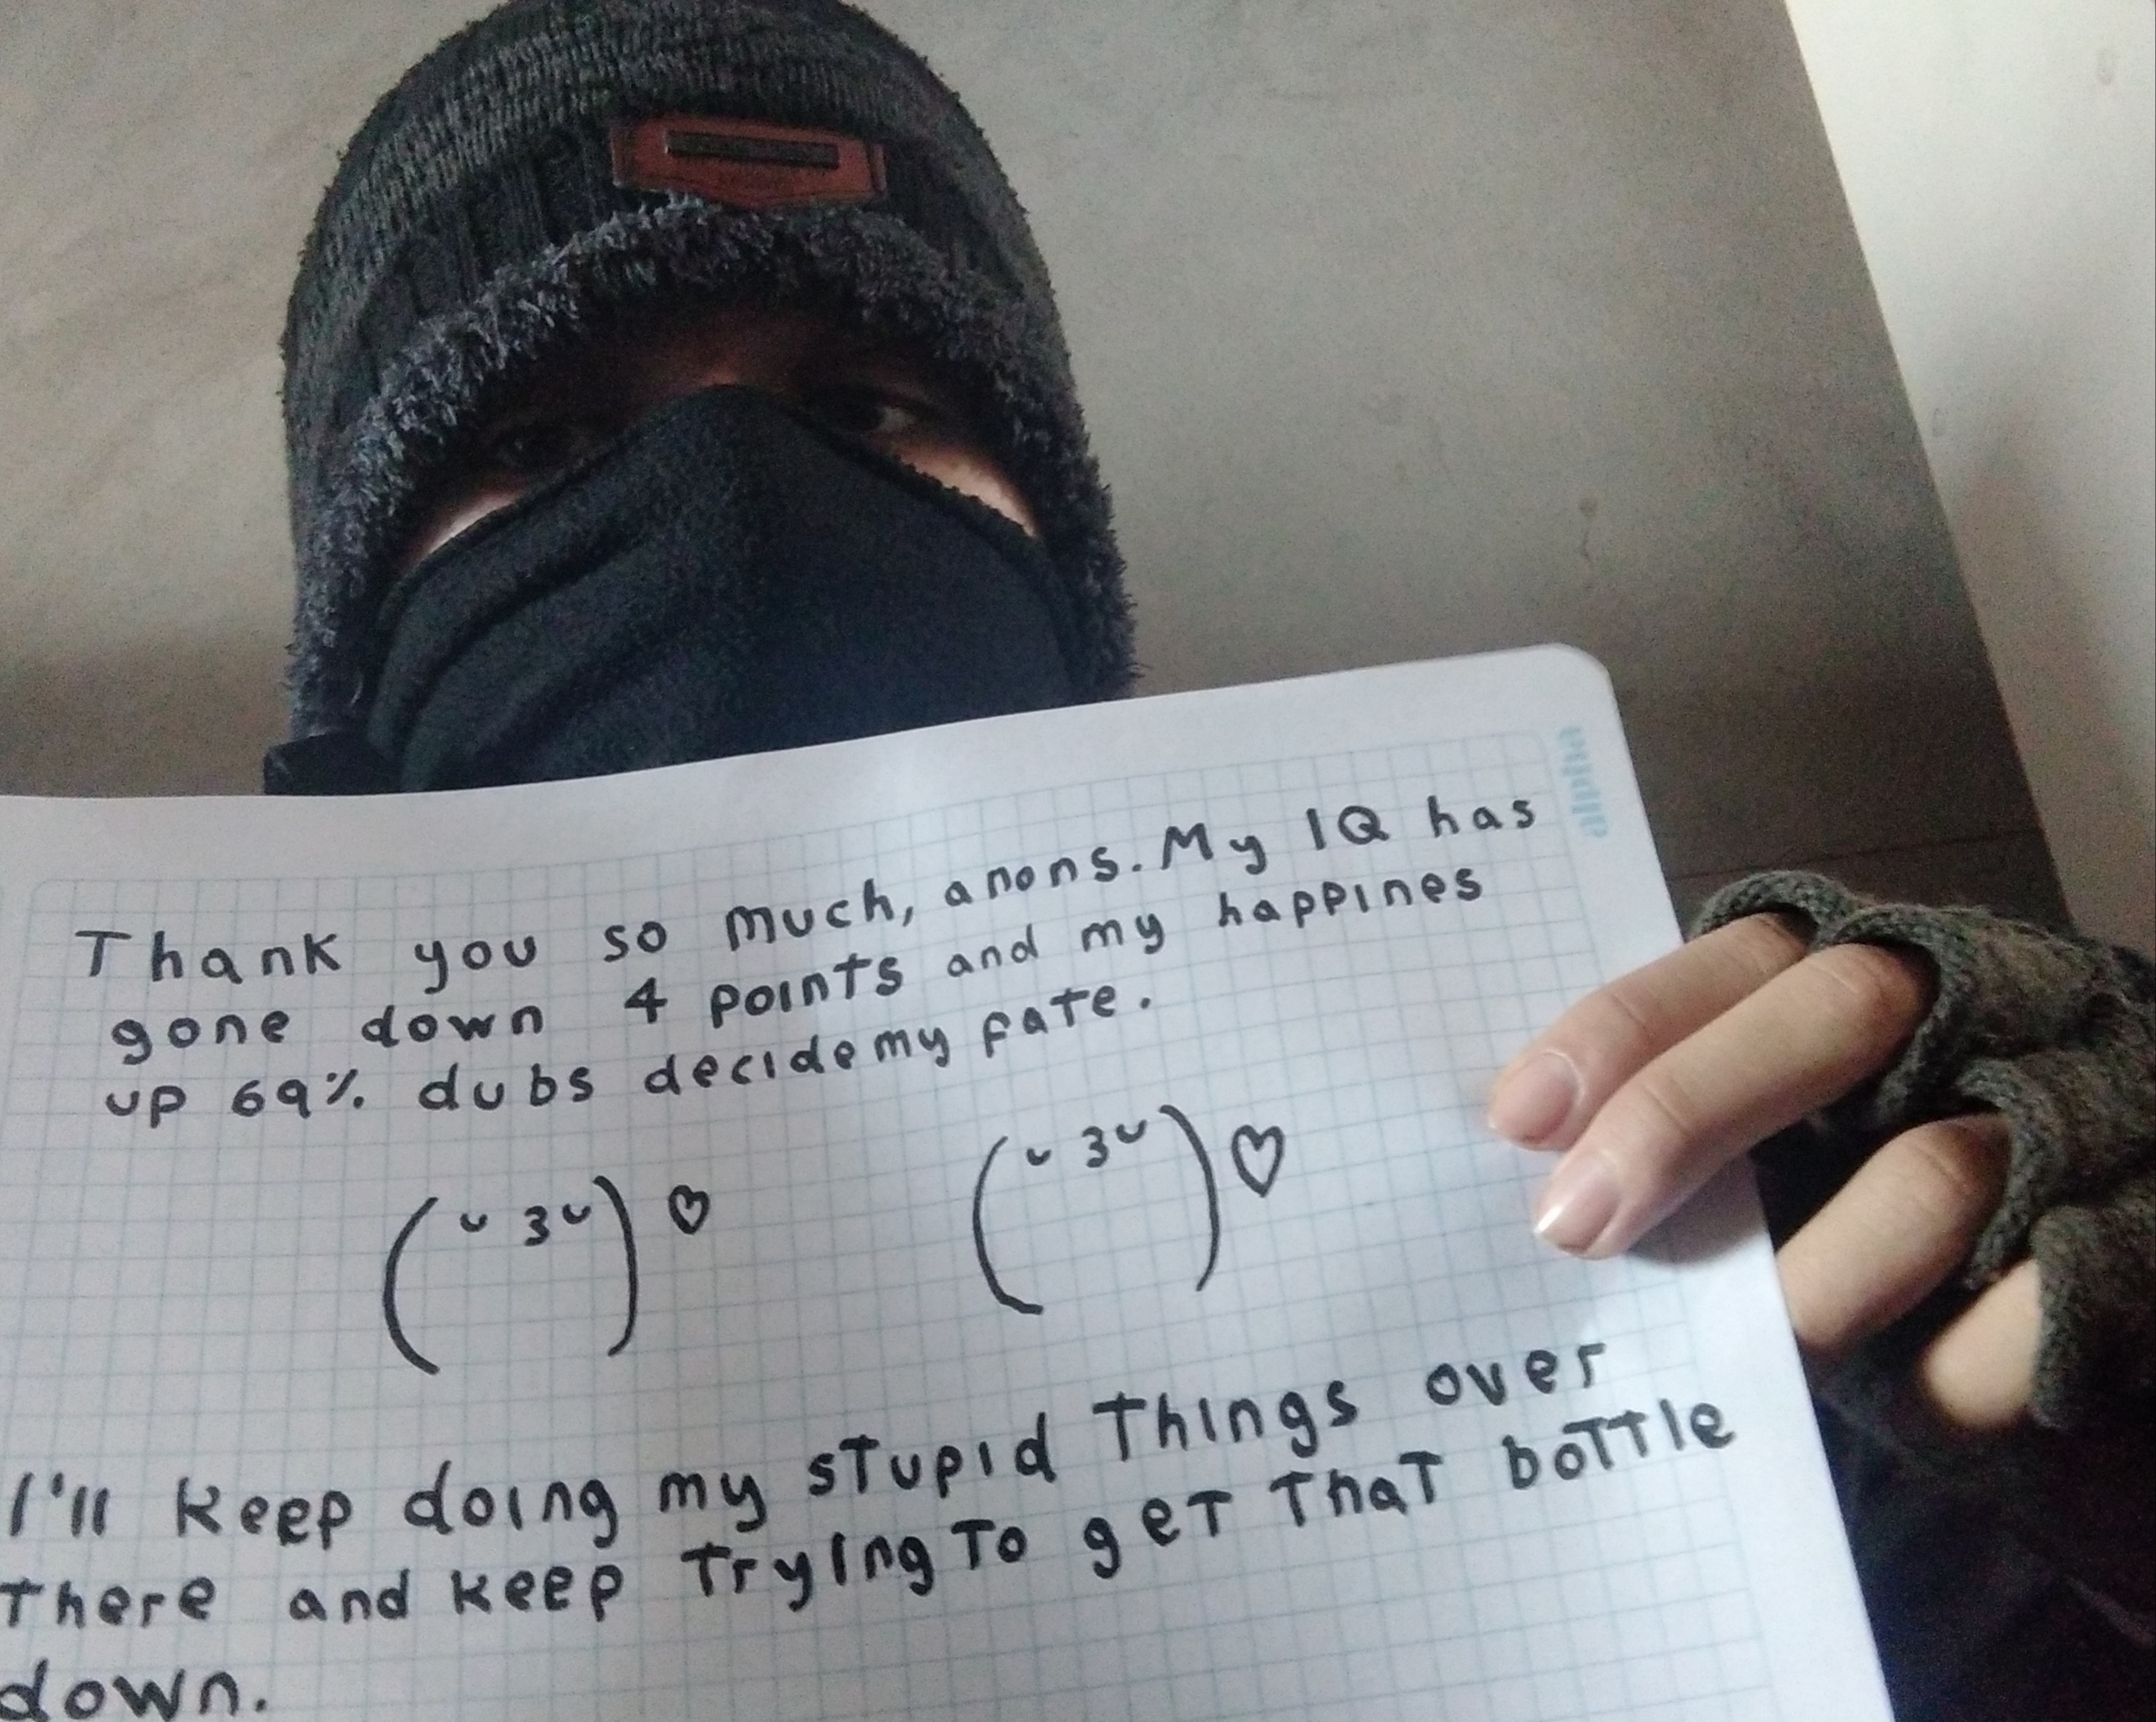 alpha
Thank you so much, anons. My IQ has
gone down 4 points and my happines
up 69% dubs decide my fate.
(˘ 3˘)♡ (˘ 3˘)♡
I'll keep doing my stupid things over
there and keep trying to get that bottle
down.